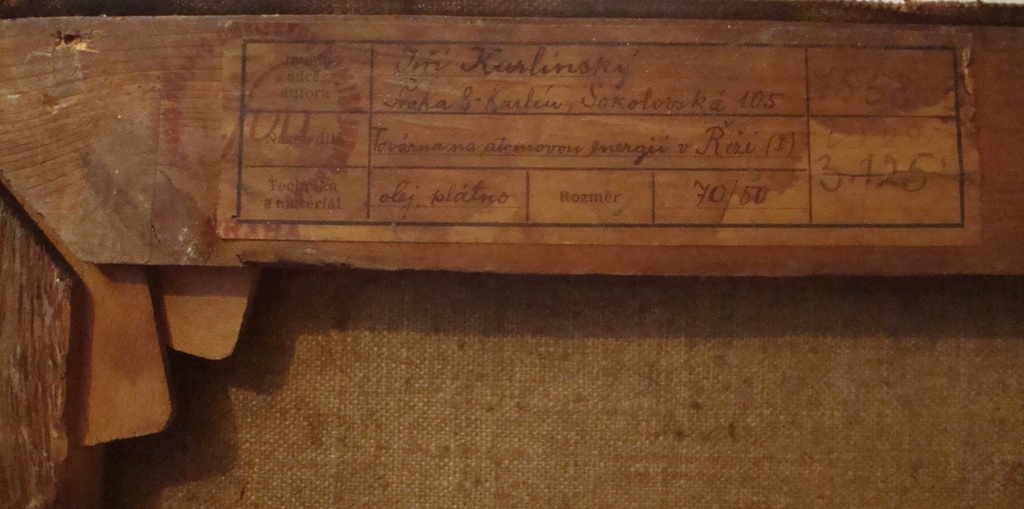 Jméno
a adresa
autora
Jiří Karlinský
Praha 8-Karlín, Sokolovská 105
Název díla
Továrna na atomovou energii v Řeži (I)
Technika
a materiál
olej, plátno
Rozměr
70/50
1558
3.126